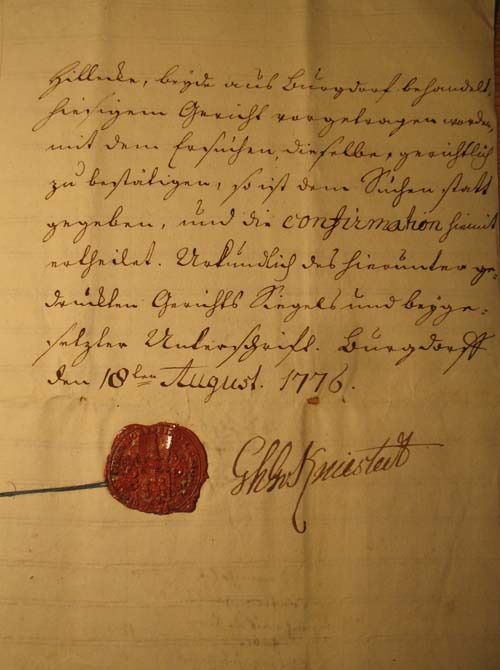 Hillecke, beyde aus Burgdorf behandelt,
hiesigem Gericht vorgetragen worden,
mit dem Ersuchen, dieselbe, gerichtlich
zu bestätigen, so ist dem Suchen statt
gegeben, und die confirmation hiemit
ertheilet. Urkundlich des hierunter ge-
druckten Gerichts Siegels und beyge-
setzter Unterschrift. Burgdorff
den 18ten August. 1776.
Kniestedt